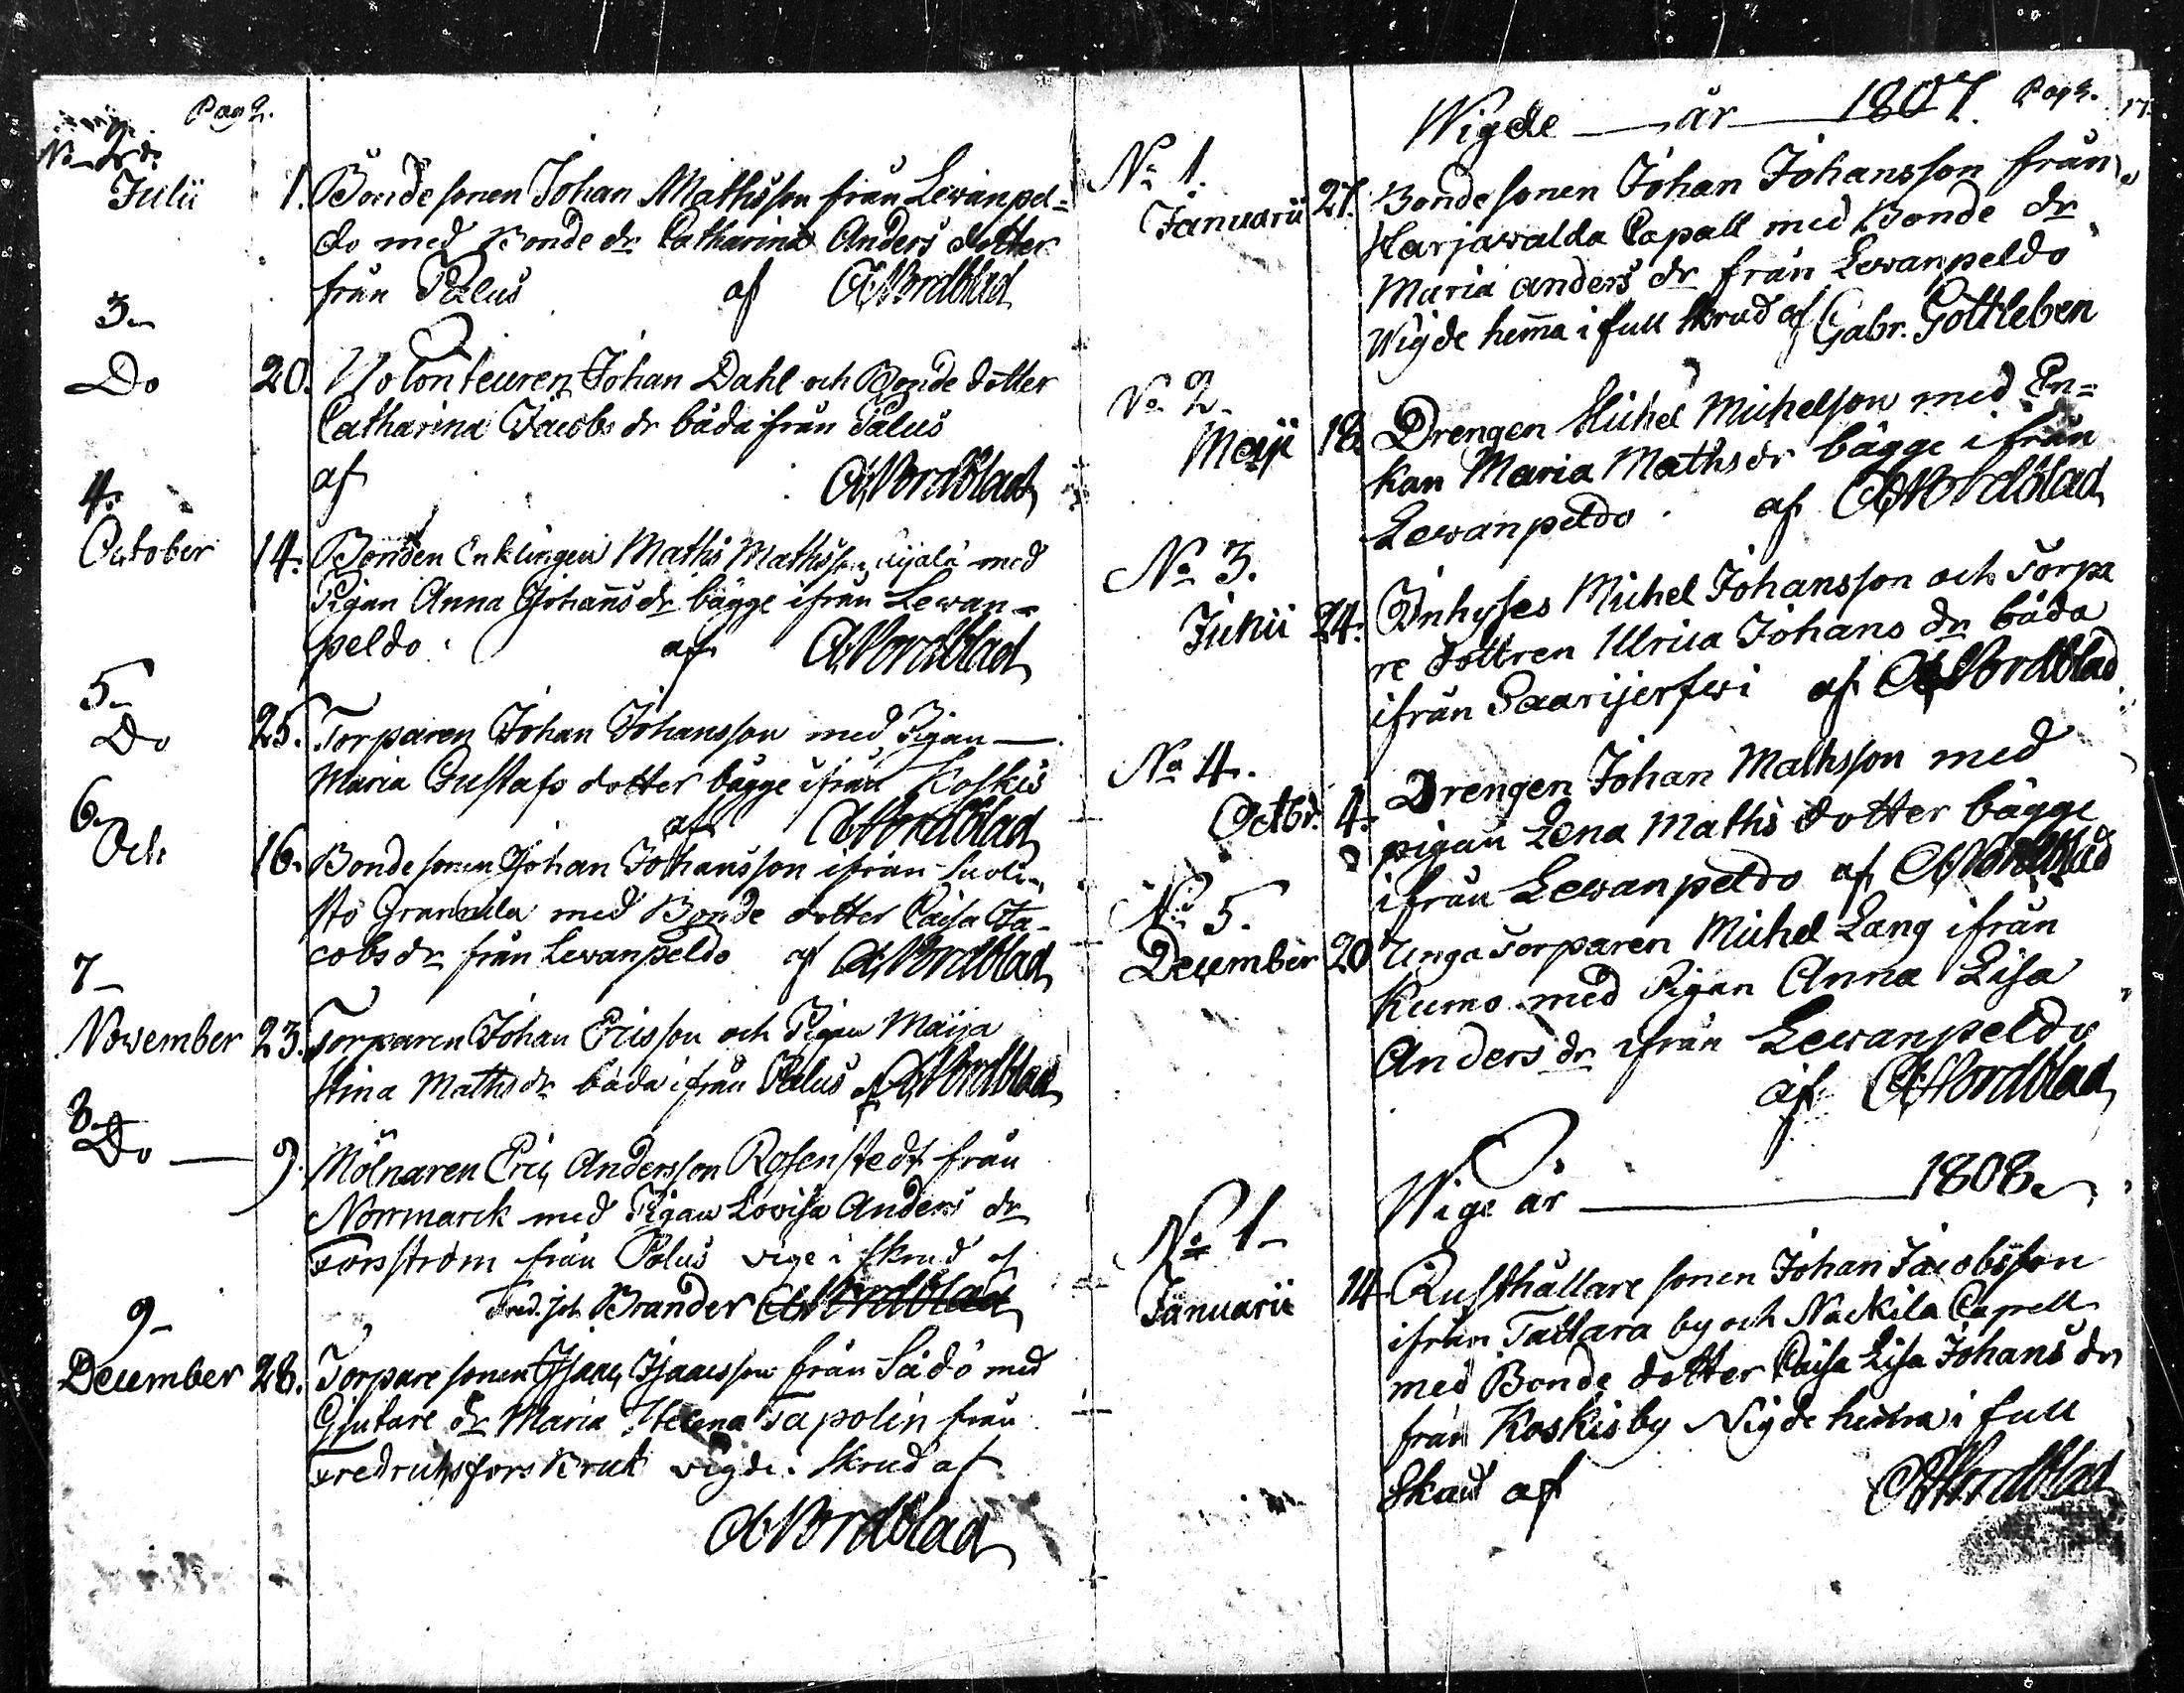 Pag 2.
Julii 1. Bondesonen Johan Mathsson från Lewanpel=
do med Bonde dr Catharina Anders dotter
från Palus af A Nordblad
3
Do 20. Volonteuren Johan Dahl och Bonde dotter
Catharina Jacobs dr båda ifrån Palus
af A Nordblad
4.
October 14. Bonden Enklingen Maths Mathsson med
Pigan Anna Johans dr bägge ifrån Lewan=
peldo. af A Nordblad
5
Do 25. Torparen Johan Johansson med Pigan —
Maria Gustafs dotter bägge ifrån Koskis
af A Nordblad
6
Och 16. Bondesonen Johan Johansson ifrån
med Bonde dotter Caisa Ja-
cobs dr från Lewanpeldo af A Nordblad
7
November 23. Torparen Johan Ericsson och Pigan Maija
Stina Maths dr båda ifrån Palus af A Nordblad
8
Do — 9. Mölnaren Eric Andersson Rosenstedt från
Norrmarck med Pigan Lovisa Anders dr
Forsström från Palus vige i skrud af
Fred. Joh. Brander A Nordblad
9
December 28. Torpare sonen Isaac Isaacsson från Sådö med
Gjutare dr Maria Helena Tapolin från
Fredrichsfors Bruk vigde. Skrud af
A Nordblad
Wigde — år — 1807. Pag 3. 17
No 1.
Januarii 27. Bonde sonen Johan Johansson från
Harjawalda Capall med Bonde dr
Maria anders dr från Lewanpeldo
Wigde hemma i full skrud af Gabr. Gottleben
No 2
Maji 18. Drengen Michel Michelson med En=
kan Maria Maths dr bägge ifrån
Lewanpeldo. af A Nordblad
No 3.
Junii 24. Inhyses Michel Johansson och Torpa
re dottren Ulrica Johans dr båda
ifrån Saarijerfwi af A Nordblad
No 4.
Octbr. 4. Drengen Johan Mathsson med
pigan Lena Maths dotter bägge
ifrån Lewanpeldo af A Nordblad
No 5.
December 20 Unga Torparen Michel Lang ifrån
Kumo med Pigan Anna Lisa
Anders dr ifrån Lewanpeldo
af A Nordblad
Wige år — 1808
No 1
Januarii 14 Rusthållare sonen Johan Jacobsson
ifrån Tattara by och Nackila Capell
med Bonde dotter Caisa Lisa Johans dr
från Koskis by Vigde hemma i full
Skrud af A Nordblad